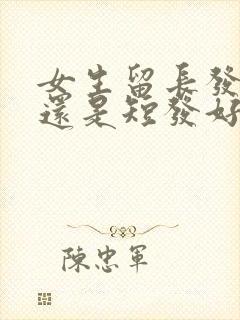 女生留長發
還是短發好
陳忠軍